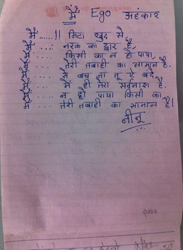 मैं Ego अहंकार
मैं.....!! मिटा खुद से
मैं.... नरक का द्वार है.
मैं.... किसी का न हो पाया,
मैं.... तेरी तबाही का सामान है.
मैं.... में बचु ना तू है बंदे
मैं.... में ही तेरा सर्वनाश है.
मैं.... न हो पाया किसी का
मैं.... तेरी तबाही का सामान है।
नीनू